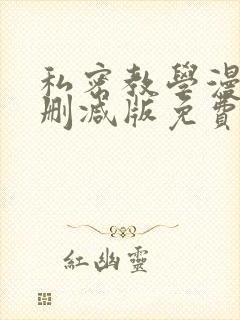 私密教學漫
刪减版免費
紅幽靈